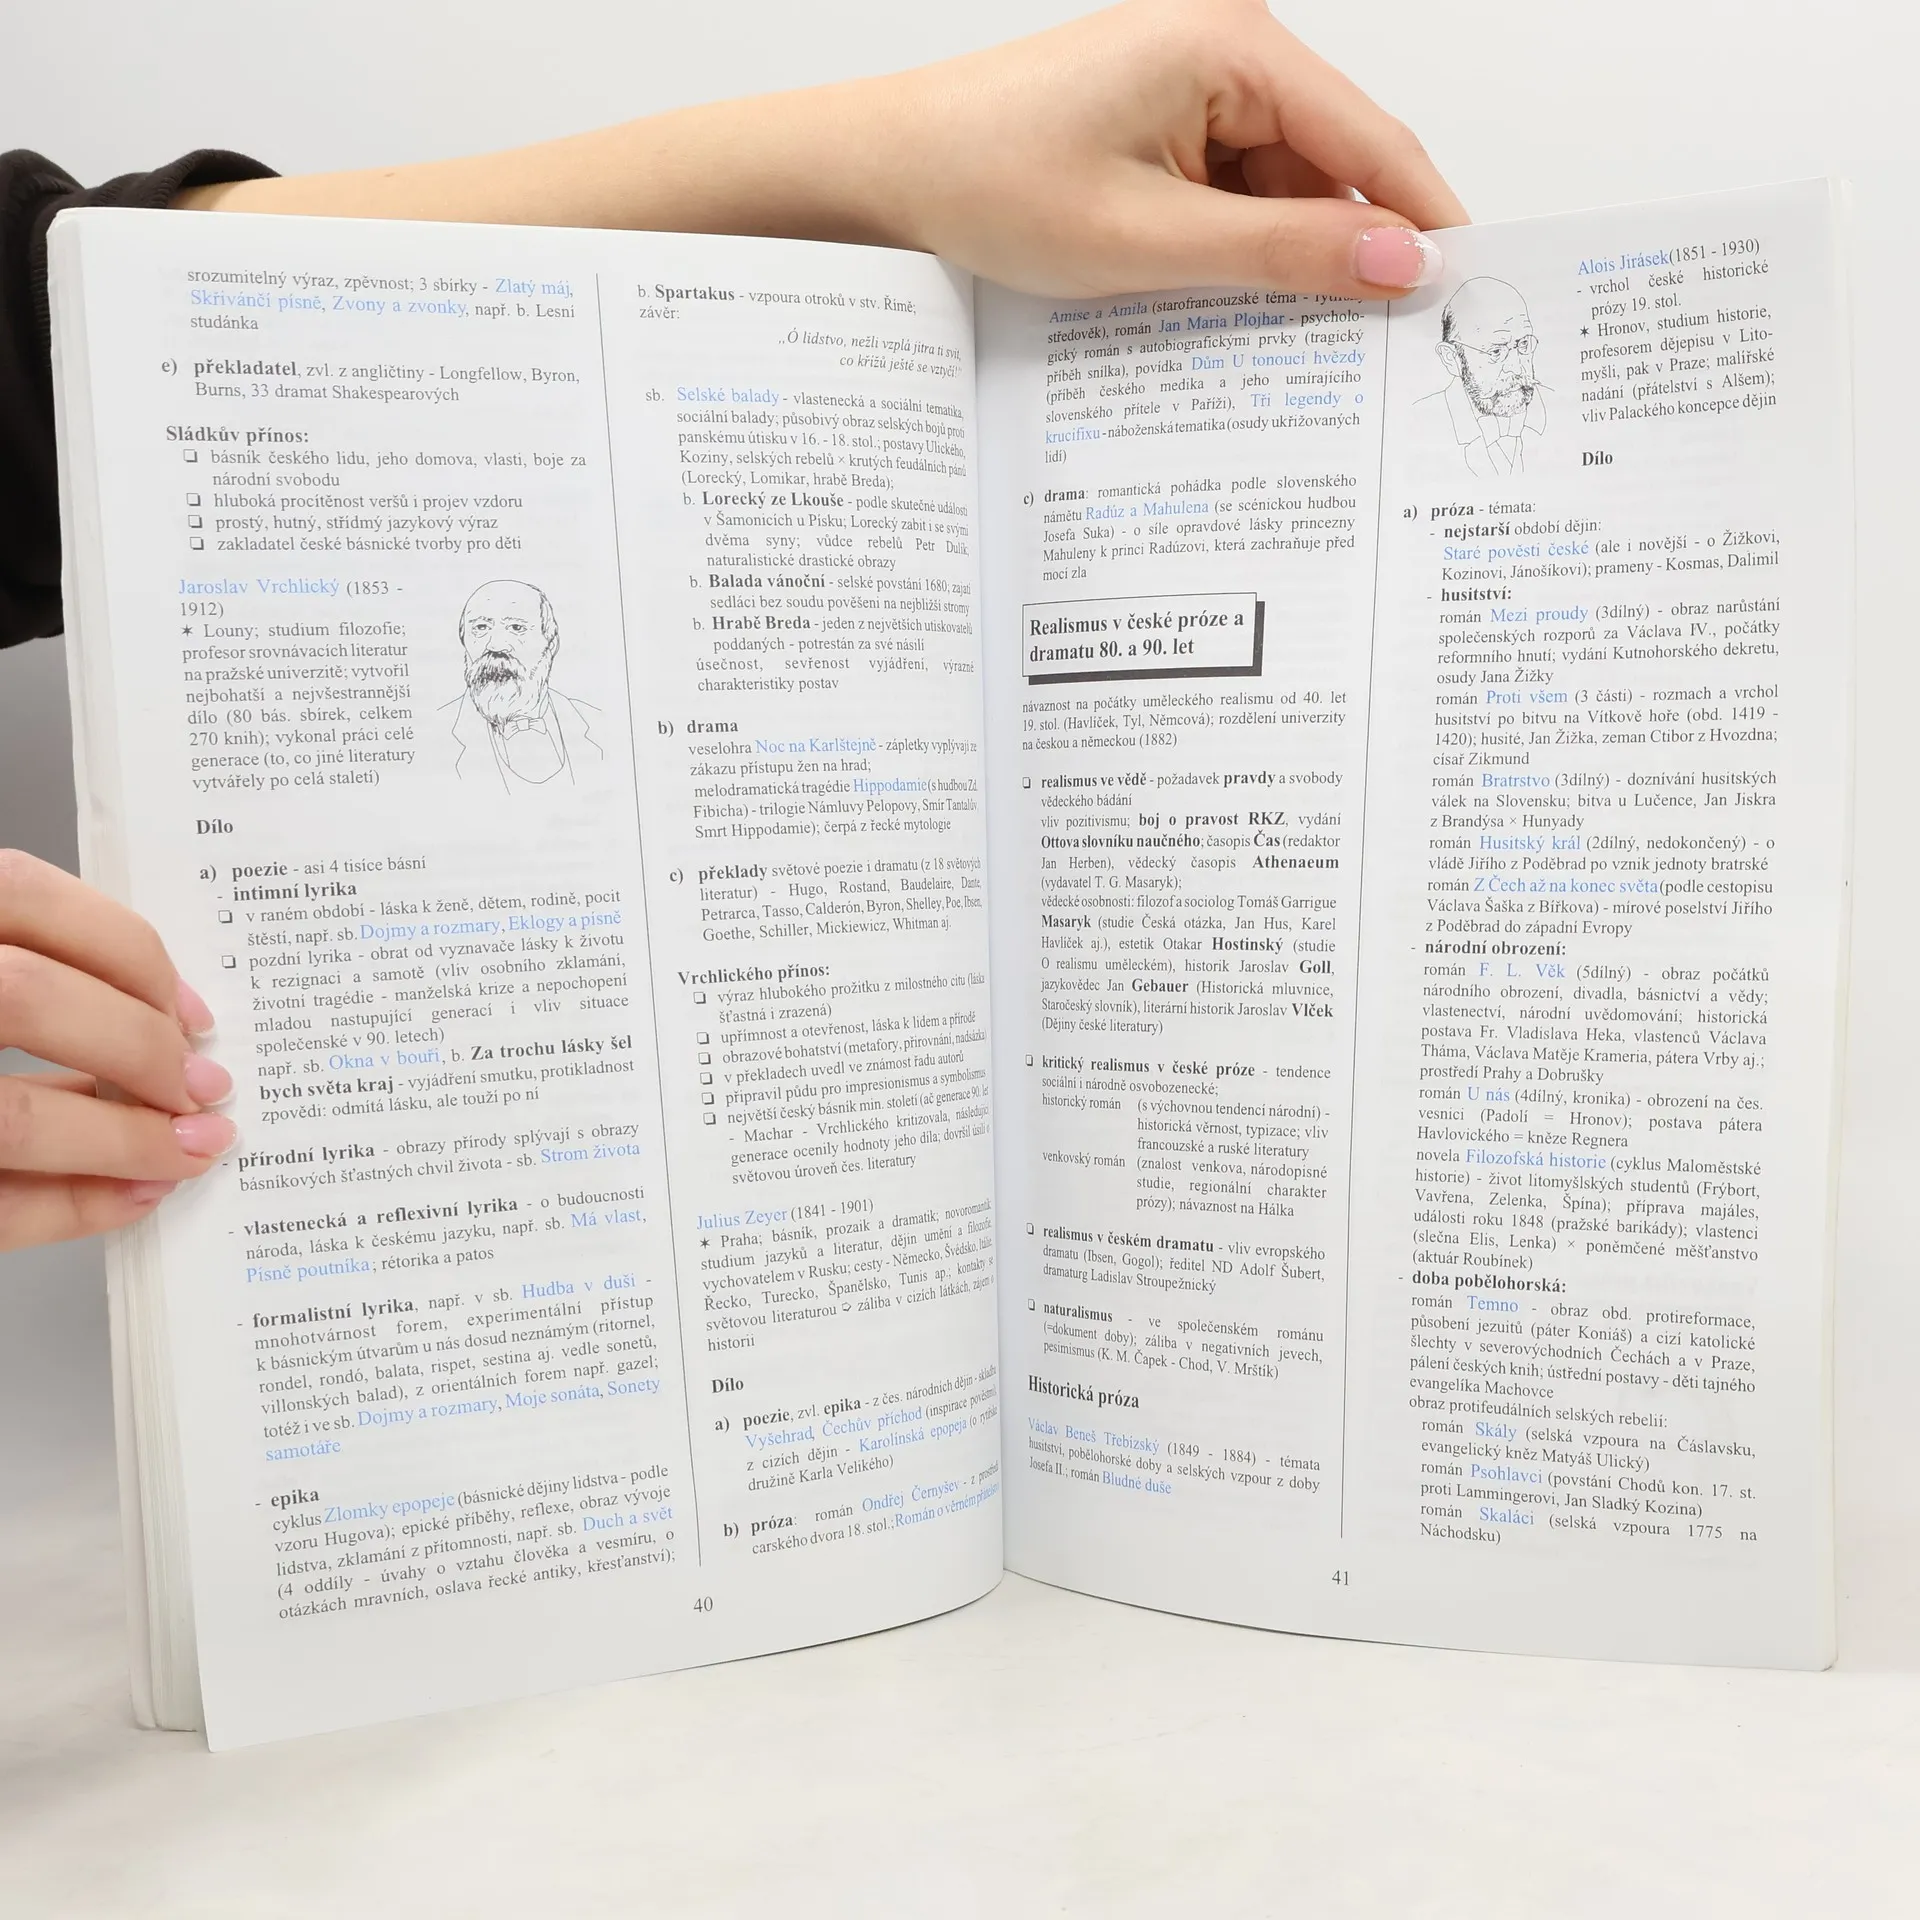 srozumitelný výraz, zpěvnost; 3 sbírky - Zlatý máj,
Skřivánčí písně, Zvony a zvonky, např. b. Lesní
studánka
e) překladatel, zvl. z angličtiny - Longfellow, Byron,
Burns, 33 dramat Shakespearových
Sládkův přínos:
❏ básník českého lidu, jeho domova, vlasti, boje za
národní svobodu
❏ hluboká procítěnost veršů i projev vzdoru
❏ prostý, hutný, střídmý jazykový výraz
❏ zakladatel české básnické tvorby pro děti
Jaroslav Vrchlický (1853 -
1912)
✶ Louny; studium filozofie;
profesor srovnávacích literatur
na pražské univerzitě; vytvořil
nejbohatší a nejvšestrannější
dílo (80 bás. sbírek, celkem
270 knih); vykonal práci celé
generace (to, co jiné literatury
vytvářely po celá staletí)
Dílo
a) poezie - asi 4 tisíce básní
- intimní lyrika
❏ v raném období - láska k ženě, dětem, rodině, pocit
štěstí, např. sb. Dojmy a rozmary, Eklogy a písně
❏ pozdní lyrika - obrat od vyznavače lásky k životu
k rezignaci a samotě (vliv osobního zklamání,
životní tragédie - manželská krize a nepochopení
mladou nastupující generací i vliv situace
společenské v 90. letech)
např. sb. Okna v bouři, b. Za trochu lásky šel
bych světa kraj - vyjádření smutku, protikladnost
zpovědi: odmítá lásku, ale touží po ní
- přírodní lyrika - obrazy přírody splývají s obrazy
básníkových šťastných chvil života - sb. Strom života
- vlastenecká a reflexivní lyrika - o budoucnosti
národa, láska k českému jazyku, např. sb. Má vlast,
Písně poutníka; rétorika a patos
- formalistní lyrika, např. v sb. Hudba v duši -
mnohotvárnost forem, experimentální přístup
k básnickým útvarům u nás dosud neznámým (ritornel,
rondel, rondó, balata, rispet, sestina aj. vedle sonetů,
villonských balad), z orientálních forem např. gazel;
totéž i ve sb. Dojmy a rozmary, Moje sonáta, Sonety
samotáře
- epika
cyklus Zlomky epopeje (básnické dějiny lidstva - podle
vzoru Hugova); epické příběhy, reflexe, obraz vývoje
lidstva, zklamání z přítomnosti, např. sb. Duch a svět
(4 oddíly - úvahy o vztahu člověka a vesmíru, o
otázkách mravních, oslava řecké antiky, křesťanství);
b. Spartakus - vzpoura otroků v stv. Římě;
závěr:
„Ó lidstvo, nežli vzplá jitra ti svit,
co křížů ještě se vztyčí!“
sb. Selské balady - vlastenecká a sociální tematika,
sociální balady; působivý obraz selských bojů proti
panskému útisku v 16. - 18. stol.; postavy Ulického,
Koziny, selských rebelů × krutých feudálních pánů
(Lorecký, Lomikar, hrabě Breda);
b. Lorecký ze Lkouše - podle skutečné události
v Šamonicích u Písku; Lorecký zabit i se svými
dvěma syny; vůdce rebelů Petr Dulík,
naturalistické drastické obrazy
b. Balada vánoční - selské povstání 1680; zajatí
sedláci bez soudu pověšeni na nejbližší stromy
b. Hrabě Breda - jeden z největších utiskovatelů
poddaných - potrestán za své násilí
úsečnost, sevřenost vyjádření, výrazné
charakteristiky postav
b) drama
veselohra Noc na Karlštejně - zápletky vyplývají ze
zákazu přístupu žen na hrad;
melodramatická tragédie Hippodamie (s hudbou Zd.
Fibicha) - trilogie Námluvy Pelopovy, Smír Tantalův,
Smrt Hippodamie); čerpá z řecké mytologie
c) překlady světové poezie i dramatu (z 18 světových
literatur) - Hugo, Rostand, Baudelaire, Dante,
Petrarca, Tasso, Calderón, Byron, Shelley, Poe, Ibsen,
Goethe, Schiller, Mickiewicz, Whitman aj.
Vrchlického přínos:
❏ výraz hlubokého prožitku z milostného citu (láska
šťastná i zrazená)
❏ upřímnost a otevřenost, láska k lidem a přírodě
❏ obrazové bohatství (metafory, přirovnání, nadsázka)
❏ v překladech uvedl ve známost řadu autorů
❏ připravil půdu pro impresionismus a symbolismus
❏ největší český básník min. století (ač generace 90. let
- Machar - Vrchlického kritizovala, následující
generace ocenily hodnoty jeho díla; dovršil úsilí o
světovou úroveň čes. literatury
Julius Zeyer (1841 - 1901)
✶ Praha; básník, prozaik a dramatik; novoromantik
studium jazyků a literatur, dějin umění a filozofie,
vychovatelem v Rusku; cesty - Německo, Švédsko, Itálie,
Řecko, Turecko, Španělsko, Tunis ap.; kontakty se
světovou literaturou ➪ záliba v cizích látkách, zájem o
historii
Dílo
a) poezie, zvl. epika - z čes. národních dějin - skladba
Vyšehrad, Čechův příchod (inspirace pověstmi),
z cizích dějin - Karolínská epopeja (o rytířské
družině Karla Velikého)
b) próza: román Ondřej Černyšev - z prostředí
carského dvora 18. stol.; Román o věrném přátelství
40
Amise a Amila (starofrancouzské téma -
středověk), román Jan Maria Plojhar - psycholo-
gický román s autobiografickými prvky (tragický
příběh snílka), povídka Dům U tonoucí hvězdy
(příběh českého medika a jeho umírajícího
slovenského přítele v Paříži), Tři legendy o
krucifixu - náboženská tematika (osudy ukřižovaných
lidí)
c) drama: romantická pohádka podle slovenského
námětu Radúz a Mahulena (se scénickou hudbou
Josefa Suka) - o síle opravdové lásky princezny
Mahuleny k princi Radúzovi, která zachraňuje před
mocí zla
Realismus v české próze a
dramatu 80. a 90. let
návaznost na počátky uměleckého realismu od 40. let
19. stol. (Havlíček, Tyl, Němcová); rozdělení univerzity
na českou a německou (1882)
❏ realismus ve vědě - požadavek pravdy a svobody
vědeckého bádání
vliv pozitivismu; boj o pravost RKZ, vydání
Ottova slovníku naučného; časopis Čas (redaktor
Jan Herben), vědecký časopis Athenaeum
(vydavatel T. G. Masaryk);
vědecké osobnosti: filozof a sociolog Tomáš Garrigue
Masaryk (studie Česká otázka, Jan Hus, Karel
Havlíček aj.), estetik Otakar Hostinský (studie
O realismu uměleckém), historik Jaroslav Goll,
jazykovědec Jan Gebauer (Historická mluvnice,
Staročeský slovník), literární historik Jaroslav Vlček
(Dějiny české literatury)
❏ kritický realismus v české próze - tendence
sociální i národně osvobozenecké;
historický román (s výchovnou tendencí národní) -
historická věrnost, typizace; vliv
francouzské a ruské literatury
venkovský román (znalost venkova, národopisné
studie, regionální charakter
prózy); návaznost na Hálka
❏ realismus v českém dramatu - vliv evropského
dramatu (Ibsen, Gogol); ředitel ND Adolf Šubert,
dramaturg Ladislav Stroupežnický
❏ naturalismus - ve společenském románu
(=dokument doby); záliba v negativních jevech,
pesimismus (K. M. Čapek - Chod, V. Mrštík)
Historická próza
Václav Beneš Třebízský (1849 - 1884) - témata
husitství, pobělohorské doby a selských vzpour z doby
Josefa II.; román Bludné duše
Alois Jirásek(1851 - 1930)
- vrchol české historické
prózy 19. stol.
✶ Hronov, studium historie,
profesorem dějepisu v Lito-
myšli, pak v Praze; malířské
nadání (přátelství s Alšem);
vliv Palackého koncepce dějin
Dílo
a) próza - témata:
- nejstarší období dějin:
Staré pověsti české (ale i novější - o Žižkovi,
Kozinovi, Jánošíkovi); prameny - Kosmas, Dalimil
- husitství:
román Mezi proudy (3dílný) - obraz narůstání
společenských rozporů za Václava IV., počátky
reformního hnutí; vydání Kutnohorského dekretu,
osudy Jana Žižky
román Proti všem (3 části) - rozmach a vrchol
husitství po bitvu na Vítkově hoře (obd. 1419 -
1420); husité, Jan Žižka, zeman Ctibor z Hvozdna;
císař Zikmund
román Bratrstvo (3dílný) - doznívání husitských
válek na Slovensku; bitva u Lučence, Jan Jiskra
z Brandýsa × Hunyady
román Husitský král (2dílný, nedokončený) - o
vládě Jiřího z Poděbrad po vznik jednoty bratrské
román Z Čech až na konec světa (podle cestopisu
Václava Šaška z Bířkova) - mírové poselství Jiřího
z Poděbrad do západní Evropy
- národní obrození:
román F. L. Věk (5dílný) - obraz počátků
národního obrození, divadla, básnictví a vědy;
vlastenectví, národní uvědomování; historická
postava Fr. Vladislava Heka, vlastenců Václava
Tháma, Václava Matěje Krameria, pátera Vrby aj.;
prostředí Prahy a Dobrušky
román U nás (4dílný, kronika) - obrození na čes.
vesnici (Padolí = Hronov); postava pátera
Havlovického = kněze Regnera
novela Filozofská historie (cyklus Maloměstské
historie) - život litomyšlských studentů (Frýbort,
Vavřena, Zelenka, Špína); příprava majáles,
události roku 1848 (pražské barikády); vlastenci
(slečna Elis, Lenka) × poněmčené měšťanstvo
(aktuár Roubínek)
- doba pobělohorská:
román Temno - obraz obd. protireformace,
působení jezuitů (páter Koniáš) a cizí katolické
šlechty v severovýchodních Čechách a v Praze,
pálení českých knih; ústřední postavy - děti tajného
evangelíka Machovce
obraz protifeudálních selských rebelií:
román Skály (selská vzpoura na Čáslavsku,
evangelický kněz Matyáš Ulický)
román Psohlavci (povstání Chodů kon. 17. st.
proti Lammingerovi, Jan Sladký Kozina)
román Skaláci (selská vzpoura 1775 na
Náchodsku)
41